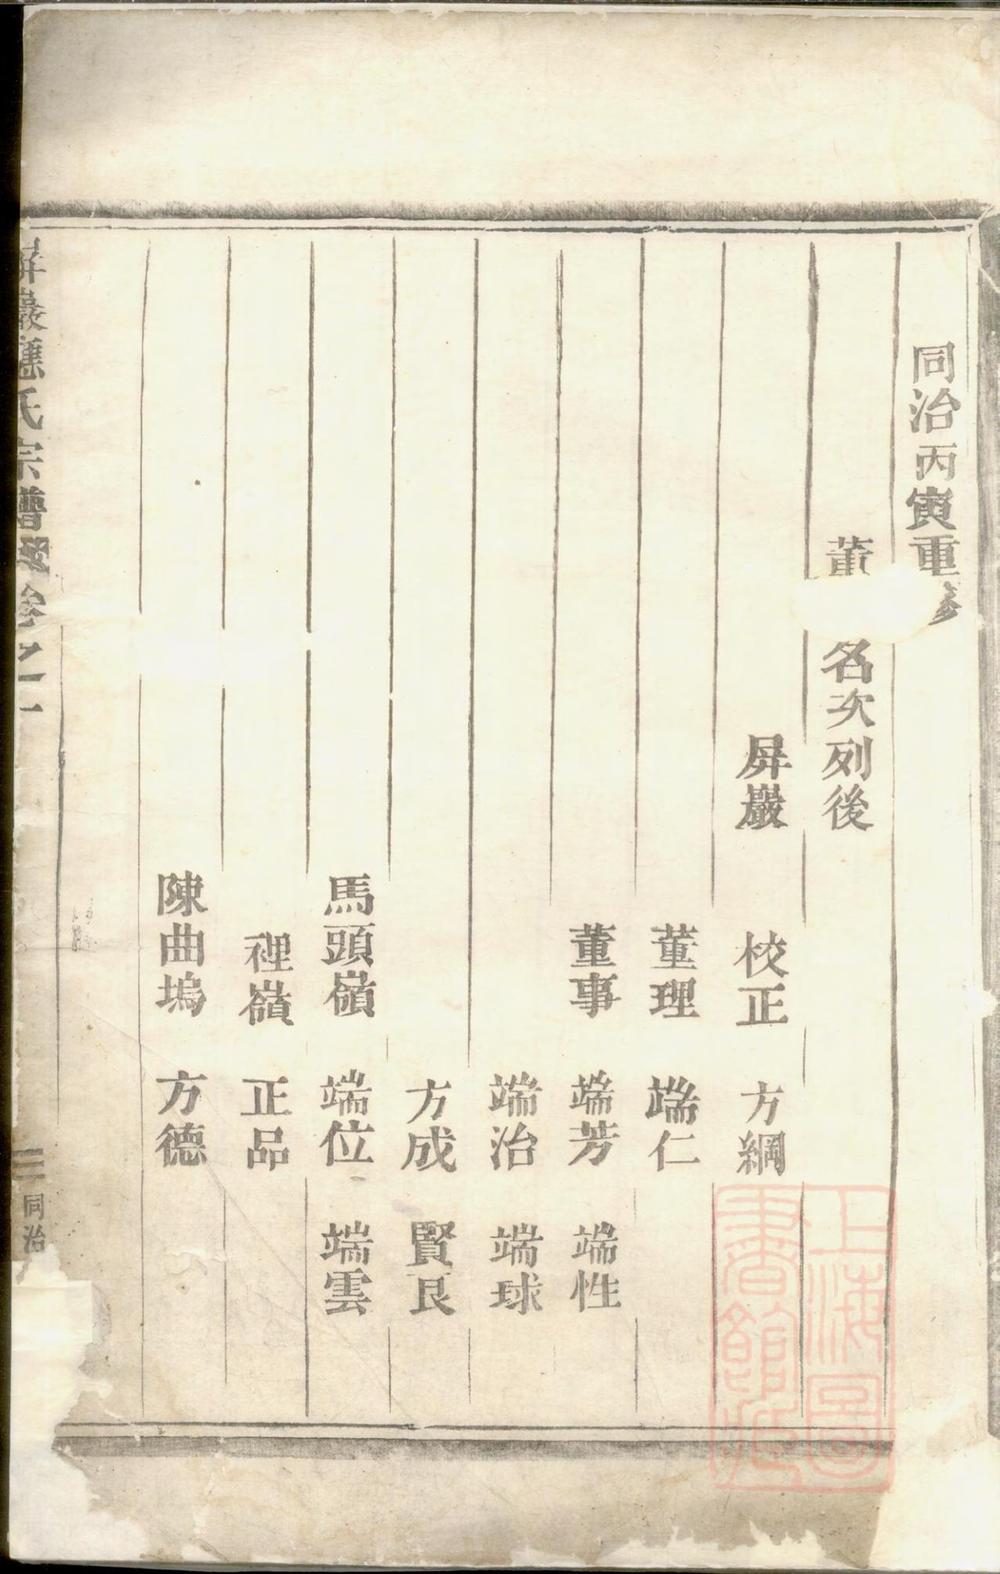 同治丙寅重修
董 名次列後
屏巖 校正 方綱
董理 端仁
董事 端芳 端性
端治 端球
方成 賢良
馬頭嶺 端位 端雲
裡嶺 正品
陳曲塢 方德
屏巖應氏宗譜 卷之一
三 同治
上海圖書館藏